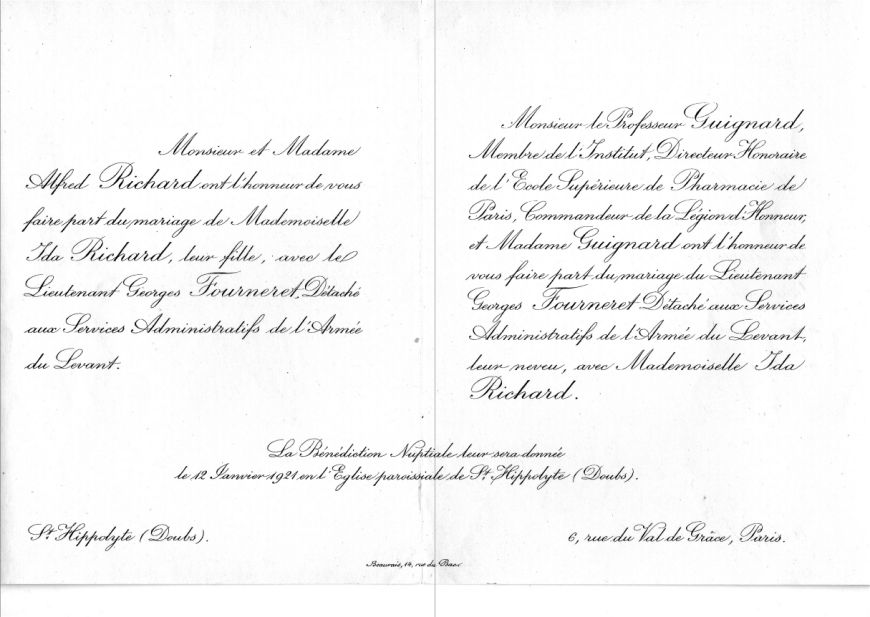 Monsieur et Madame
Alfred Richard ont l'honneur de vous
faire part du mariage de Mademoiselle
Ida Richard, leur fille, avec le
Lieutenant Georges Fourneret, Détaché
aux Services Administratifs de l'Armée
du Levant.
Monsieur le Professeur Guignard,
Membre de l'Institut, Directeur Honoraire
de l'Ecole Supérieure de Pharmacie de
Paris, Commandeur de la Légion d'Honneur,
et Madame Guignard ont l'honneur de
vous faire part du mariage du Lieutenant
Georges Fourneret Détaché aux Services
Administratifs de l'Armée du Levant,
leur neveu, avec Mademoiselle Ida
Richard.
La Bénédiction Nuptiale leur sera donnée
le 12 Janvier 1921 en l'Eglise paroissiale de St. Hippolyte (Doubs).
St. Hippolyte (Doubs).
6, rue du Val de Grâce, Paris.
Beauvais, 14, rue du Bac.